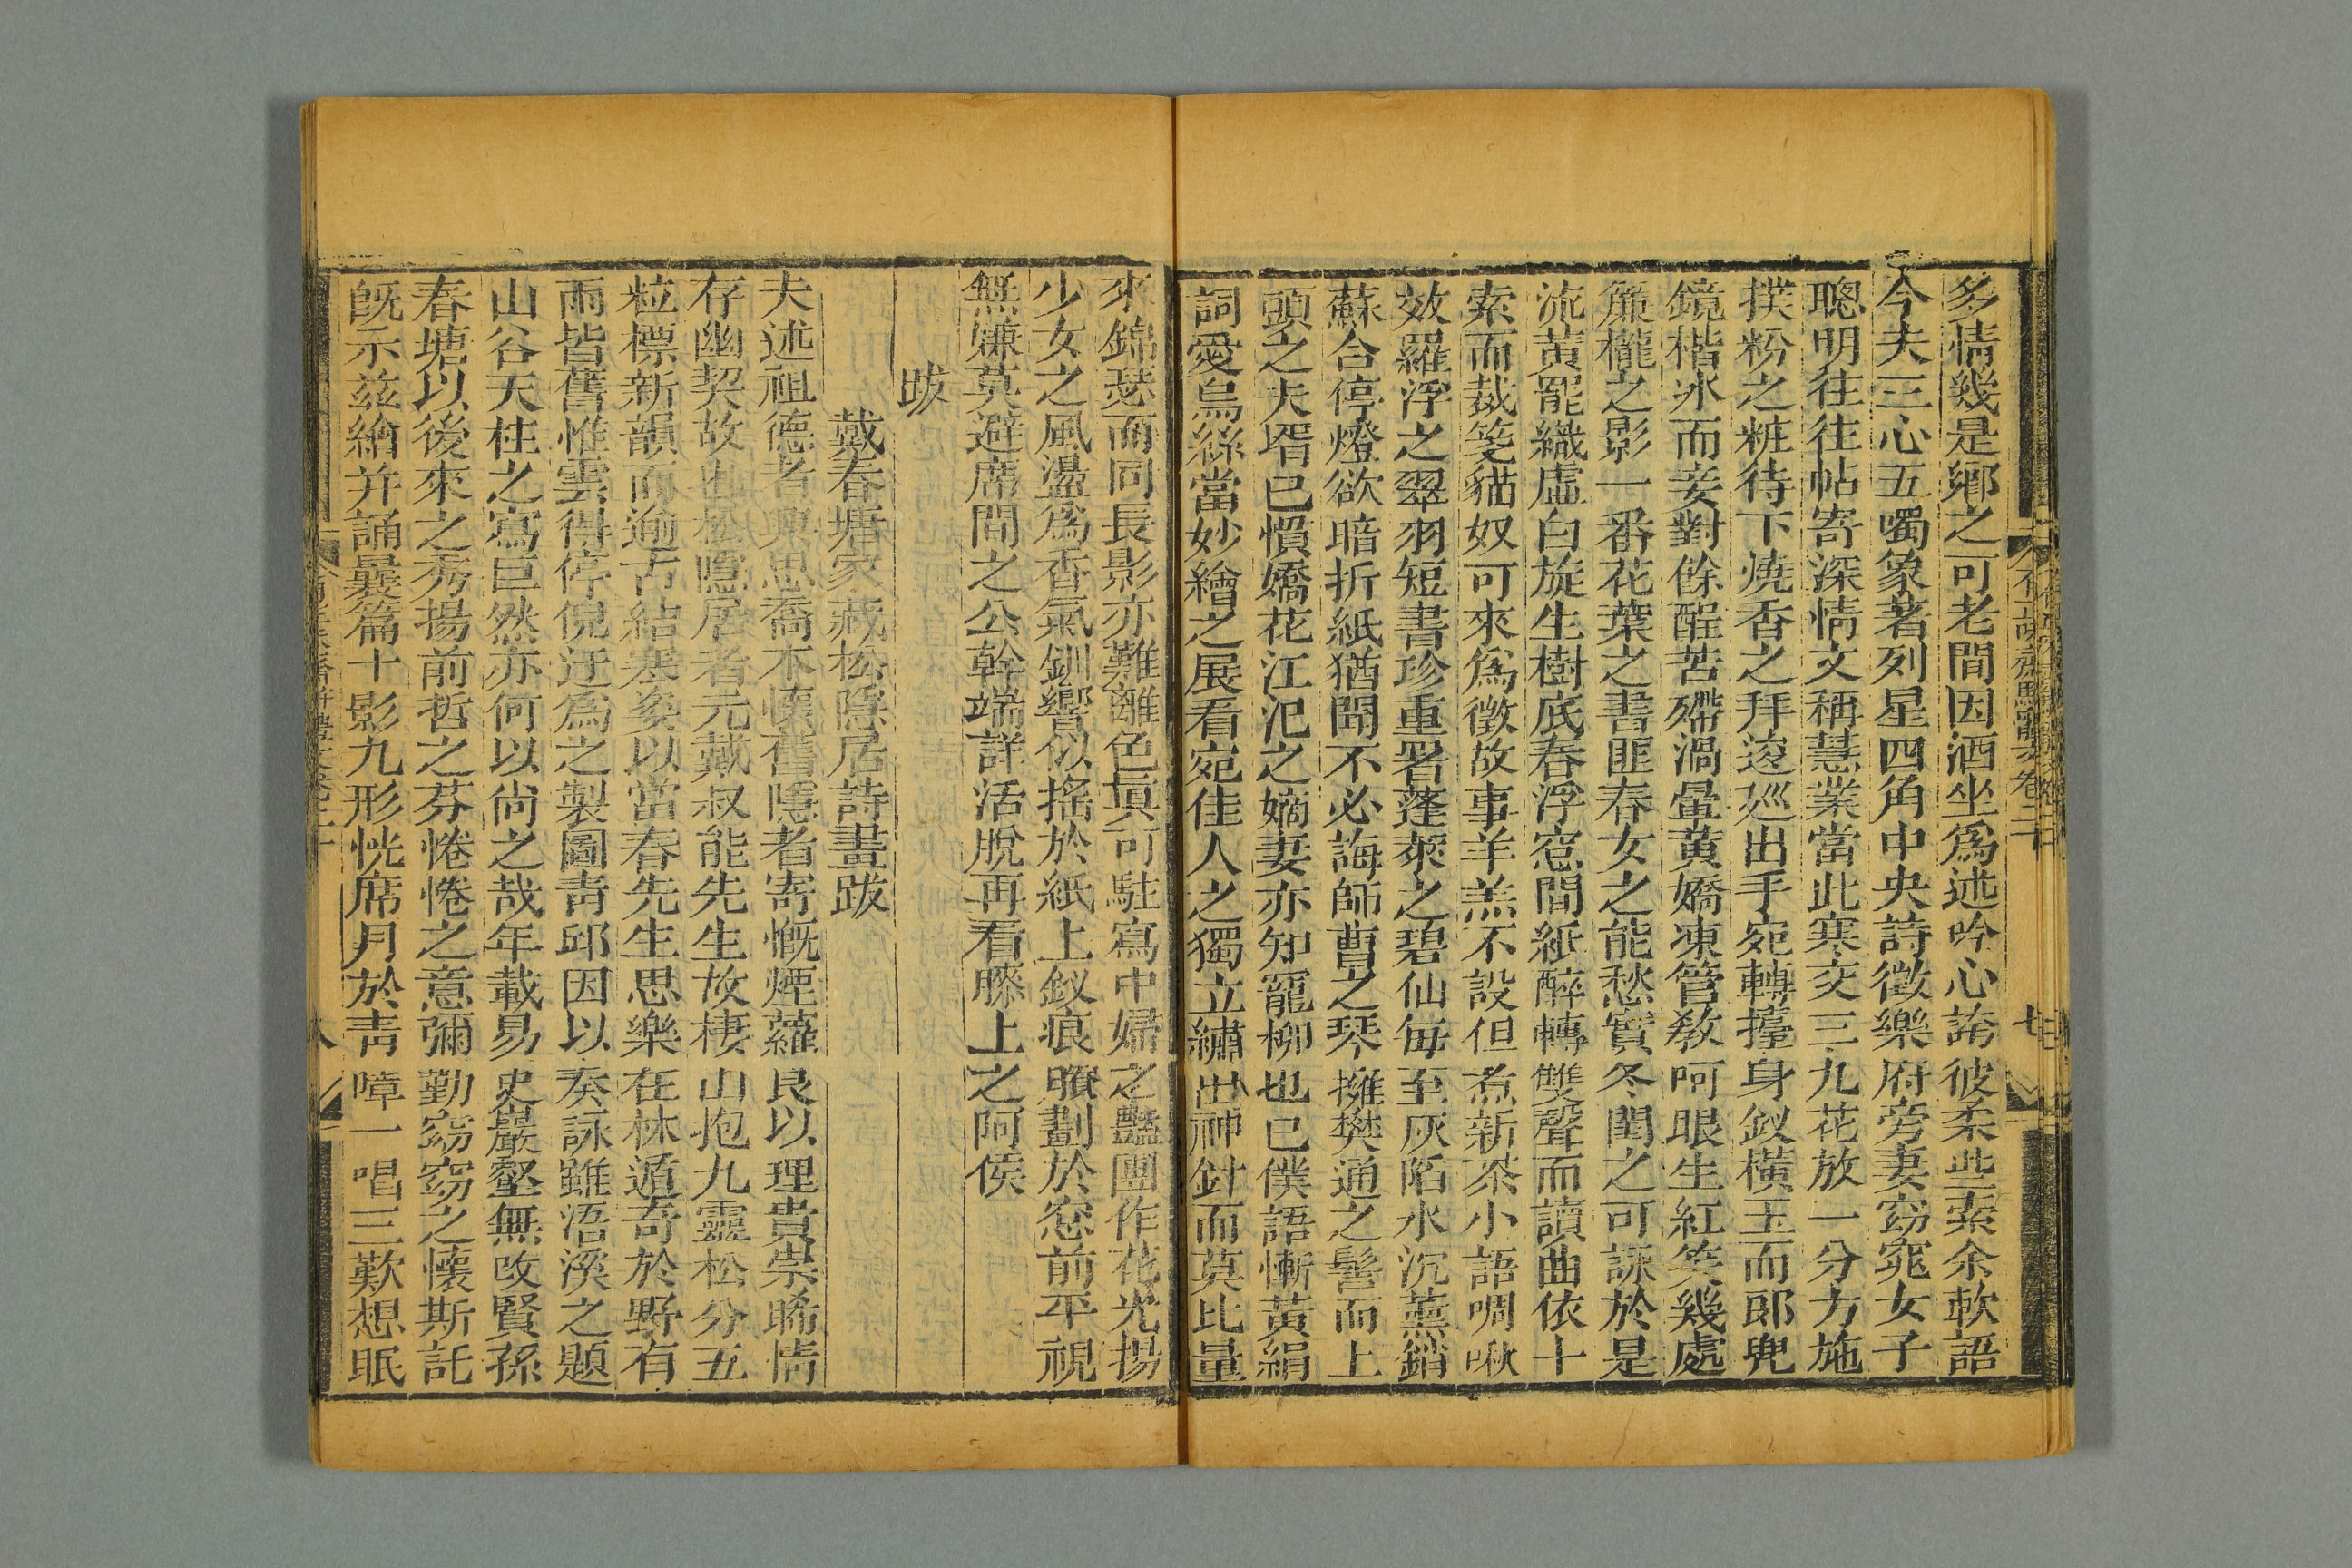 多情幾是鄉之可老間因酒坐爲述吟心誇彼柔些索余軟語
今夫三心五噣象著列星四角中央詩徵樂府旁妻窈窕女子
聰明往往帖寄深情文稱慧業當此寒交三九花放一分方施
撲粉之粧待下燒香之拜逡巡出手宛轉擡身釵橫玉而郎兜
鏡楷冰而妾對餘酲苦殢渦暈黃嬌凍管敎呵眼生紅笑幾處
簾櫳之影一番花葉之書匪春女之能愁實冬閨之可詠於是
流黃罷織虛白旋生樹底春浮窓間紙醉轉雙聲而讀曲依十
索而裁箋貓奴可來爲徵故事羊羔不設但煮新茶小語啁啾
效羅浮之翠羽短書珍重署蓬萊之碧仙每至灰陷水沉薰銷
蘇合停燈欲暗折紙猶聞不必誨師曹之琴擁樊通之髻而上
頭之夫壻已慣嬌花江汜之嫡妻亦知寵柳也已僕語慚黃絹
詞愛烏絲當妙繪之展看宛佳人之獨立繡出神針而莫比量
來錦瑟而同長影亦難離色眞可駐寫中婦之豔團作花光揚
少女之風盪爲香氣釧響似搖於紙上釵痕職劃於窓前平視
無嫌莫避席間之公幹端詳活脫再看膝上之阿侯
跋
戴春塘家藏松隱居詩畫跋
夫述祖德者興思喬木懷舊隱者寄慨煙蘿良以理貴崇晞情
存幽契故也松隱居者元戴叔能先生故棲山抱九靈松分五
粒標新韻而逾古結寒姿以當春先生思樂在林遁奇於野有
雨皆舊惟雲得停倪迂爲之製圖靑邱因以奏詠雖浯溪之題
山谷天柱之寫巨然亦何以尙之哉年載易史巖壑無改賢孫
春塘以後來之秀揚前哲之芬惓惓之意彌勤窈窈之懷斯託
旣示兹繪并誦曩篇十影九形恍席月於靑嶂一唱三歎想眠
卷二十
七
八